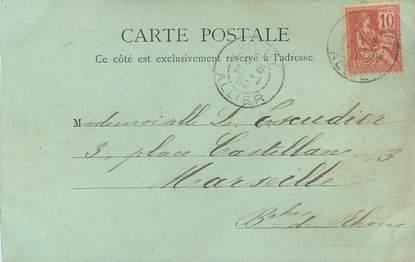 CARTE POSTALE
Ce côté est exclusivement réservé à l'adresse.
POSTES
10
ALLIER
Mademoiselle L. Escudier
3, place Castellane, 3
Marseille
B. du Rhône